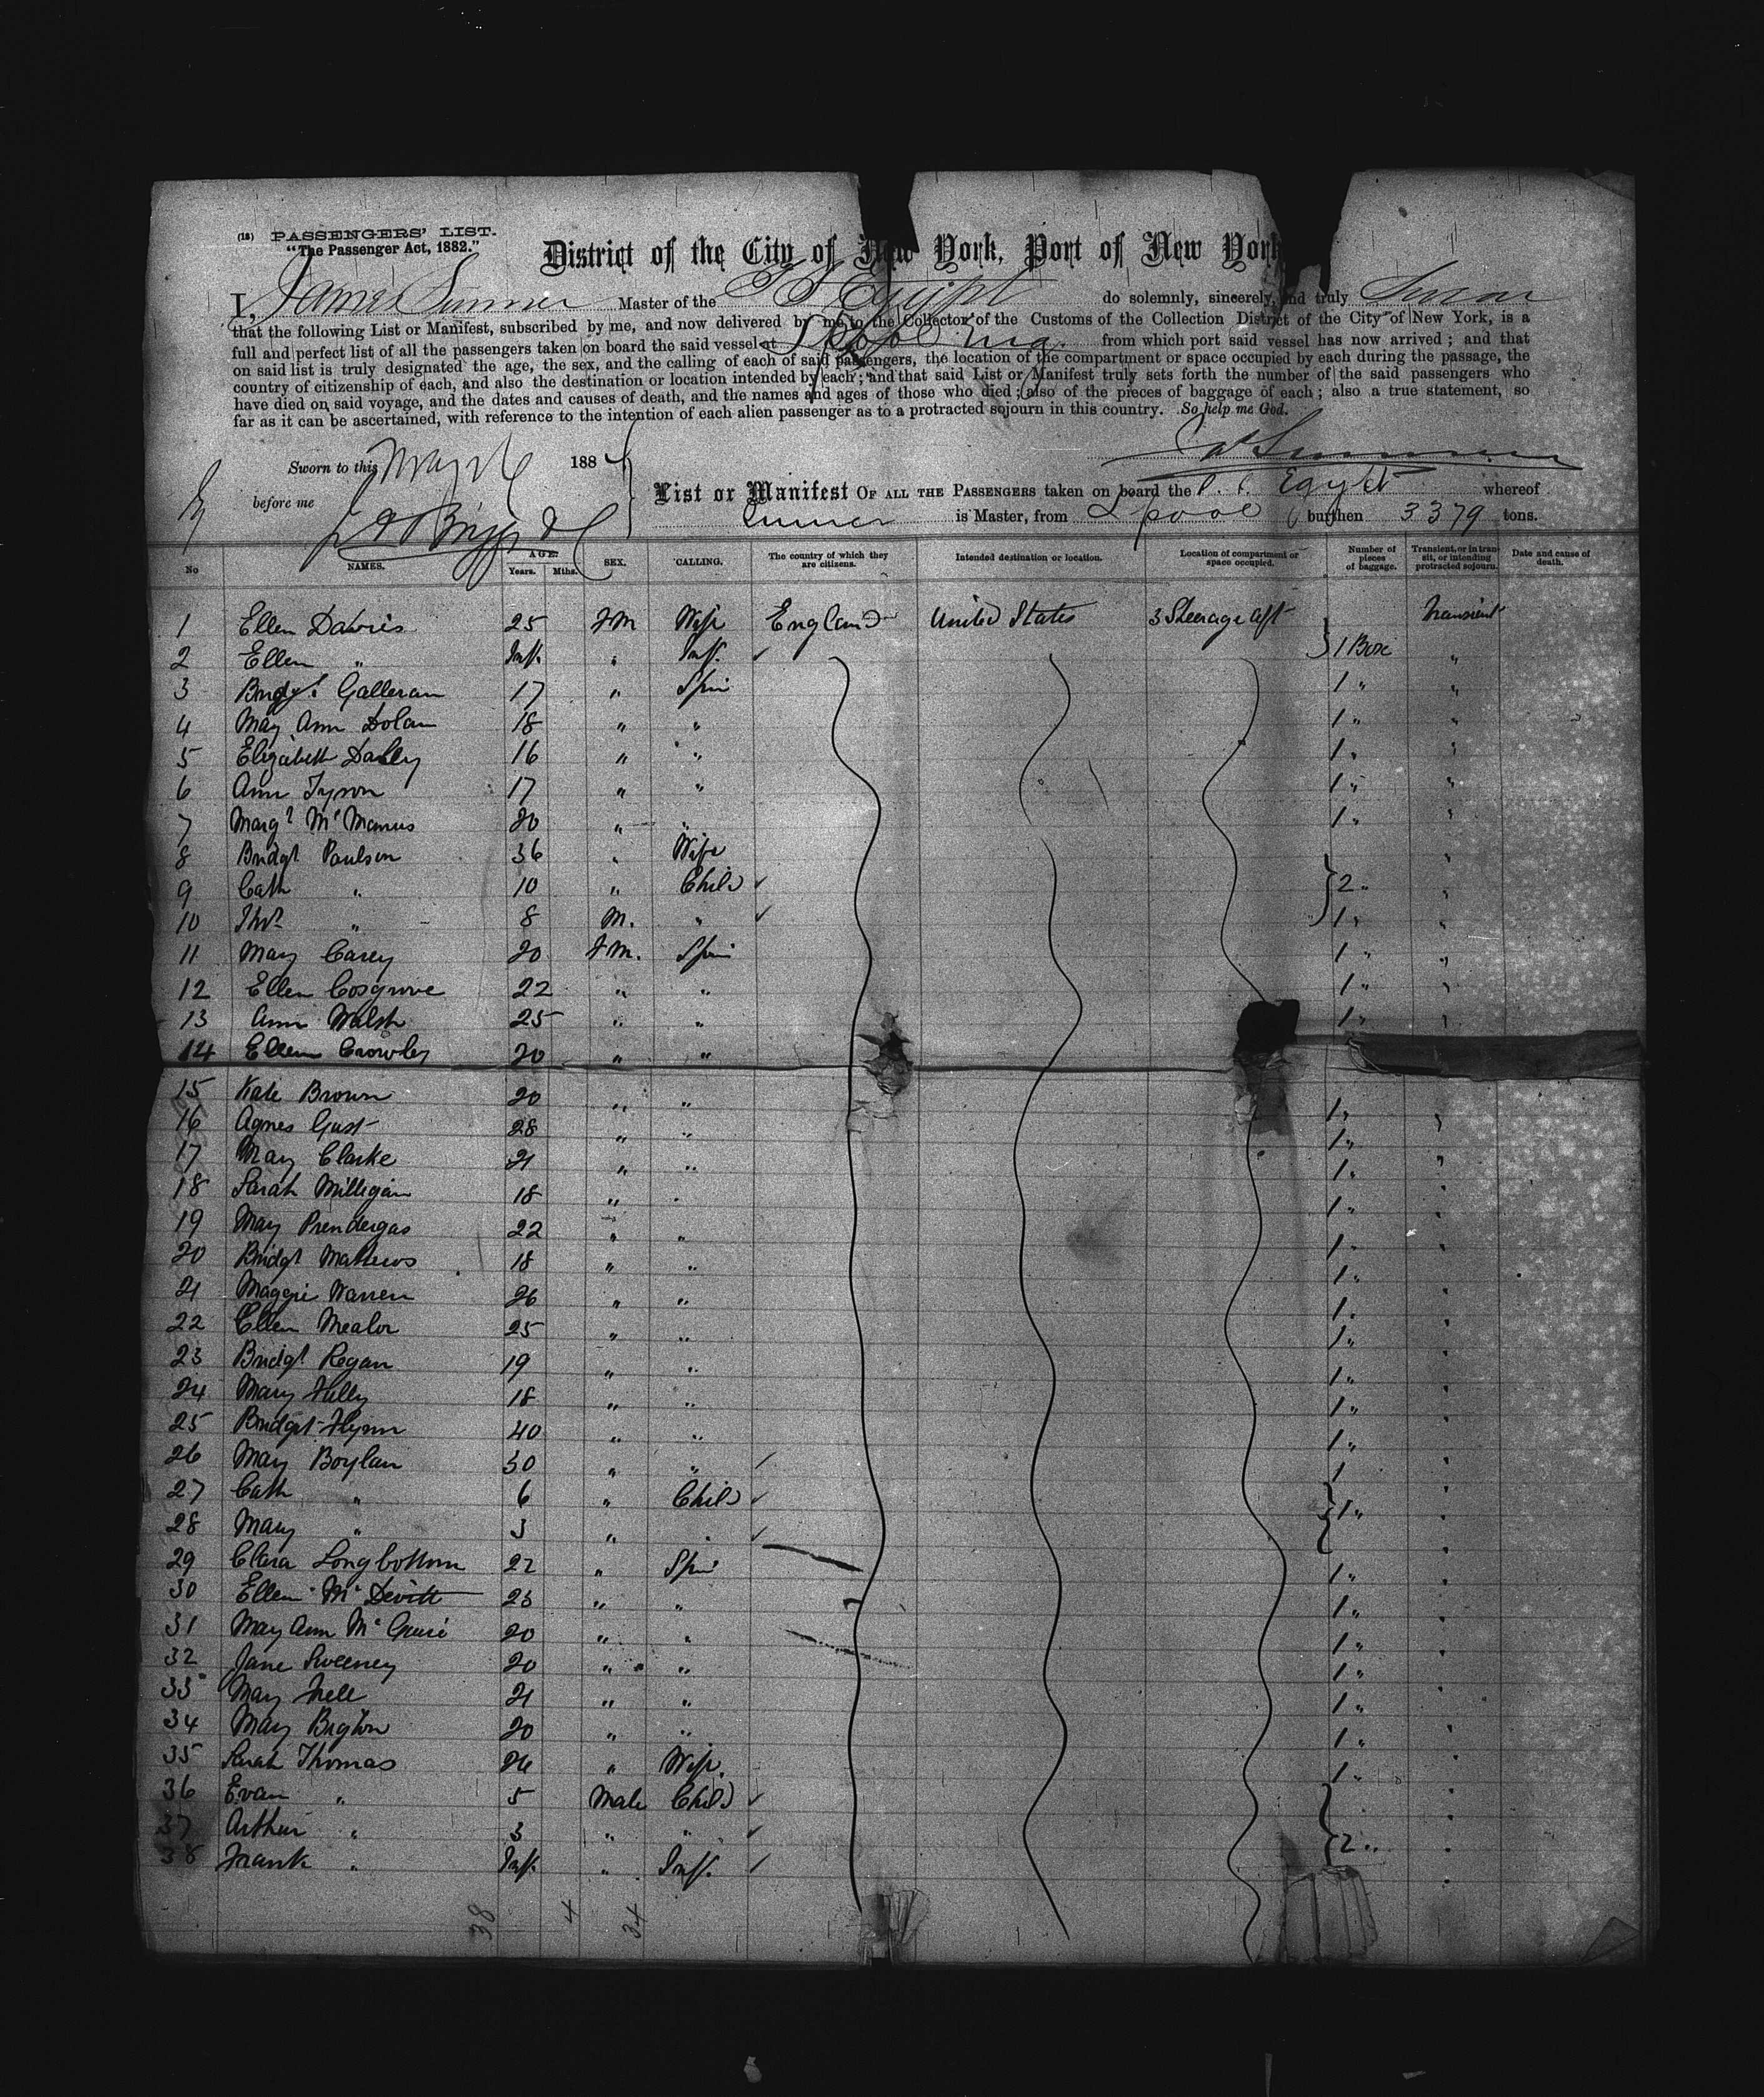 (18) PASSENGERS' LIST.
"The Passenger Act, 1882."
District of the City of New York, Port of New York
I, James Sumner Master of the SS Egypt do solemnly, sincerely, and truly Swear
that the following List or Manifest, subscribed by me, and now delivered by me to the Collector of the Customs of the Collection District of the City of New York, is a
full and perfect list of all the passengers taken on board the said vessel at L'pool Eng. from which port said vessel has now arrived; and that
on said list is truly designated the age, the sex, and the calling of each of said passengers, the location of the compartment or space occupied by each during the passage, the
country of citizenship of each, and also the destination or location intended by each; and that said List or Manifest truly sets forth the number of the said passengers who
have died on said voyage, and the dates and causes of death, and the names and ages of those who died; also of the pieces of baggage of each; also a true statement, so
far as it can be ascertained, with reference to the intention of each alien passenger as to a protracted sojourn in this country. So help me God.
Sworn to this May 188
before me
List or Manifest OF ALL THE PASSENGERS taken on board the S. S. Egypt whereof
Sumner is Master, from L'pool burthen 3379 tons.
No NAMES. AGE. Years. Mths. SEX. CALLING. The country of which they are citizens. Intended destination or location. Location of compartment or space occupied. Number of pieces of baggage. Transient, or in transit, or intending protracted sojourn. Date and cause of death.
1 Ellen Davies 25 FM Wife England United States 3 Steerage Aft Transient
2 Ellen " Inf. " Inf. 1 Box "
3 Bridgt Galleran 17 " Spin 1 " "
4 May Ann Dolan 18 " " 1 " "
5 Elizabeth Dalley 16 " " 1 " "
6 Ann Tyson 17 " " 1 " "
7 Margt McManus 20 " " 1 " "
8 Bridgt Paulson 36 " Wife "
9 Cath " 10 " Child 2 " "
10 Thos " 8 M. " 1 " "
11 Mary Carey 20 FM. Spin 1 " "
12 Ellen Cosgrove 22 " " 1 " "
13 Ann Walsh 25 " " 1 " "
14 Ellen Crowley 20 " "
15 Kate Brown 20 " " 1 " "
16 Agnes Gust 28 " " 1 " "
17 Mary Clarke 21 " " 1 " "
18 Sarah Milligan 18 " " 1 " "
19 May Prendergas 22 " " 1 " "
20 Bridgt Mathews 18 " " 1 " "
21 Maggie Warren 26 " " 1 " "
22 Ellen Mealor 25 " " 1 " "
23 Bridgt Regan 19 " " 1 " "
24 Mary Fully 18 " " 1 " "
25 Bridget Flynn 40 " " 1 " "
26 May Boylan 30 " " 1 "
27 Cath " 6 " Child 1 " "
28 Mary " 3 " " "
29 Clara Longbottom 22 " Spin 1 " "
30 Ellen McDevitt 23 " " 1 " "
31 May Ann McGuire 20 " " 1 " "
32 Jane Sweeney 20 " " 1 " "
33 May 21 " " 1 " "
34 May Brighton 20 " " 1 " "
35 Sarah Thomas 26 " Wife. 1 " "
36 Evan " 5 Male Child "
37 Arthur " 3 " " 2 " "
38 Frank " Inf. " Inf. "
38 4 34